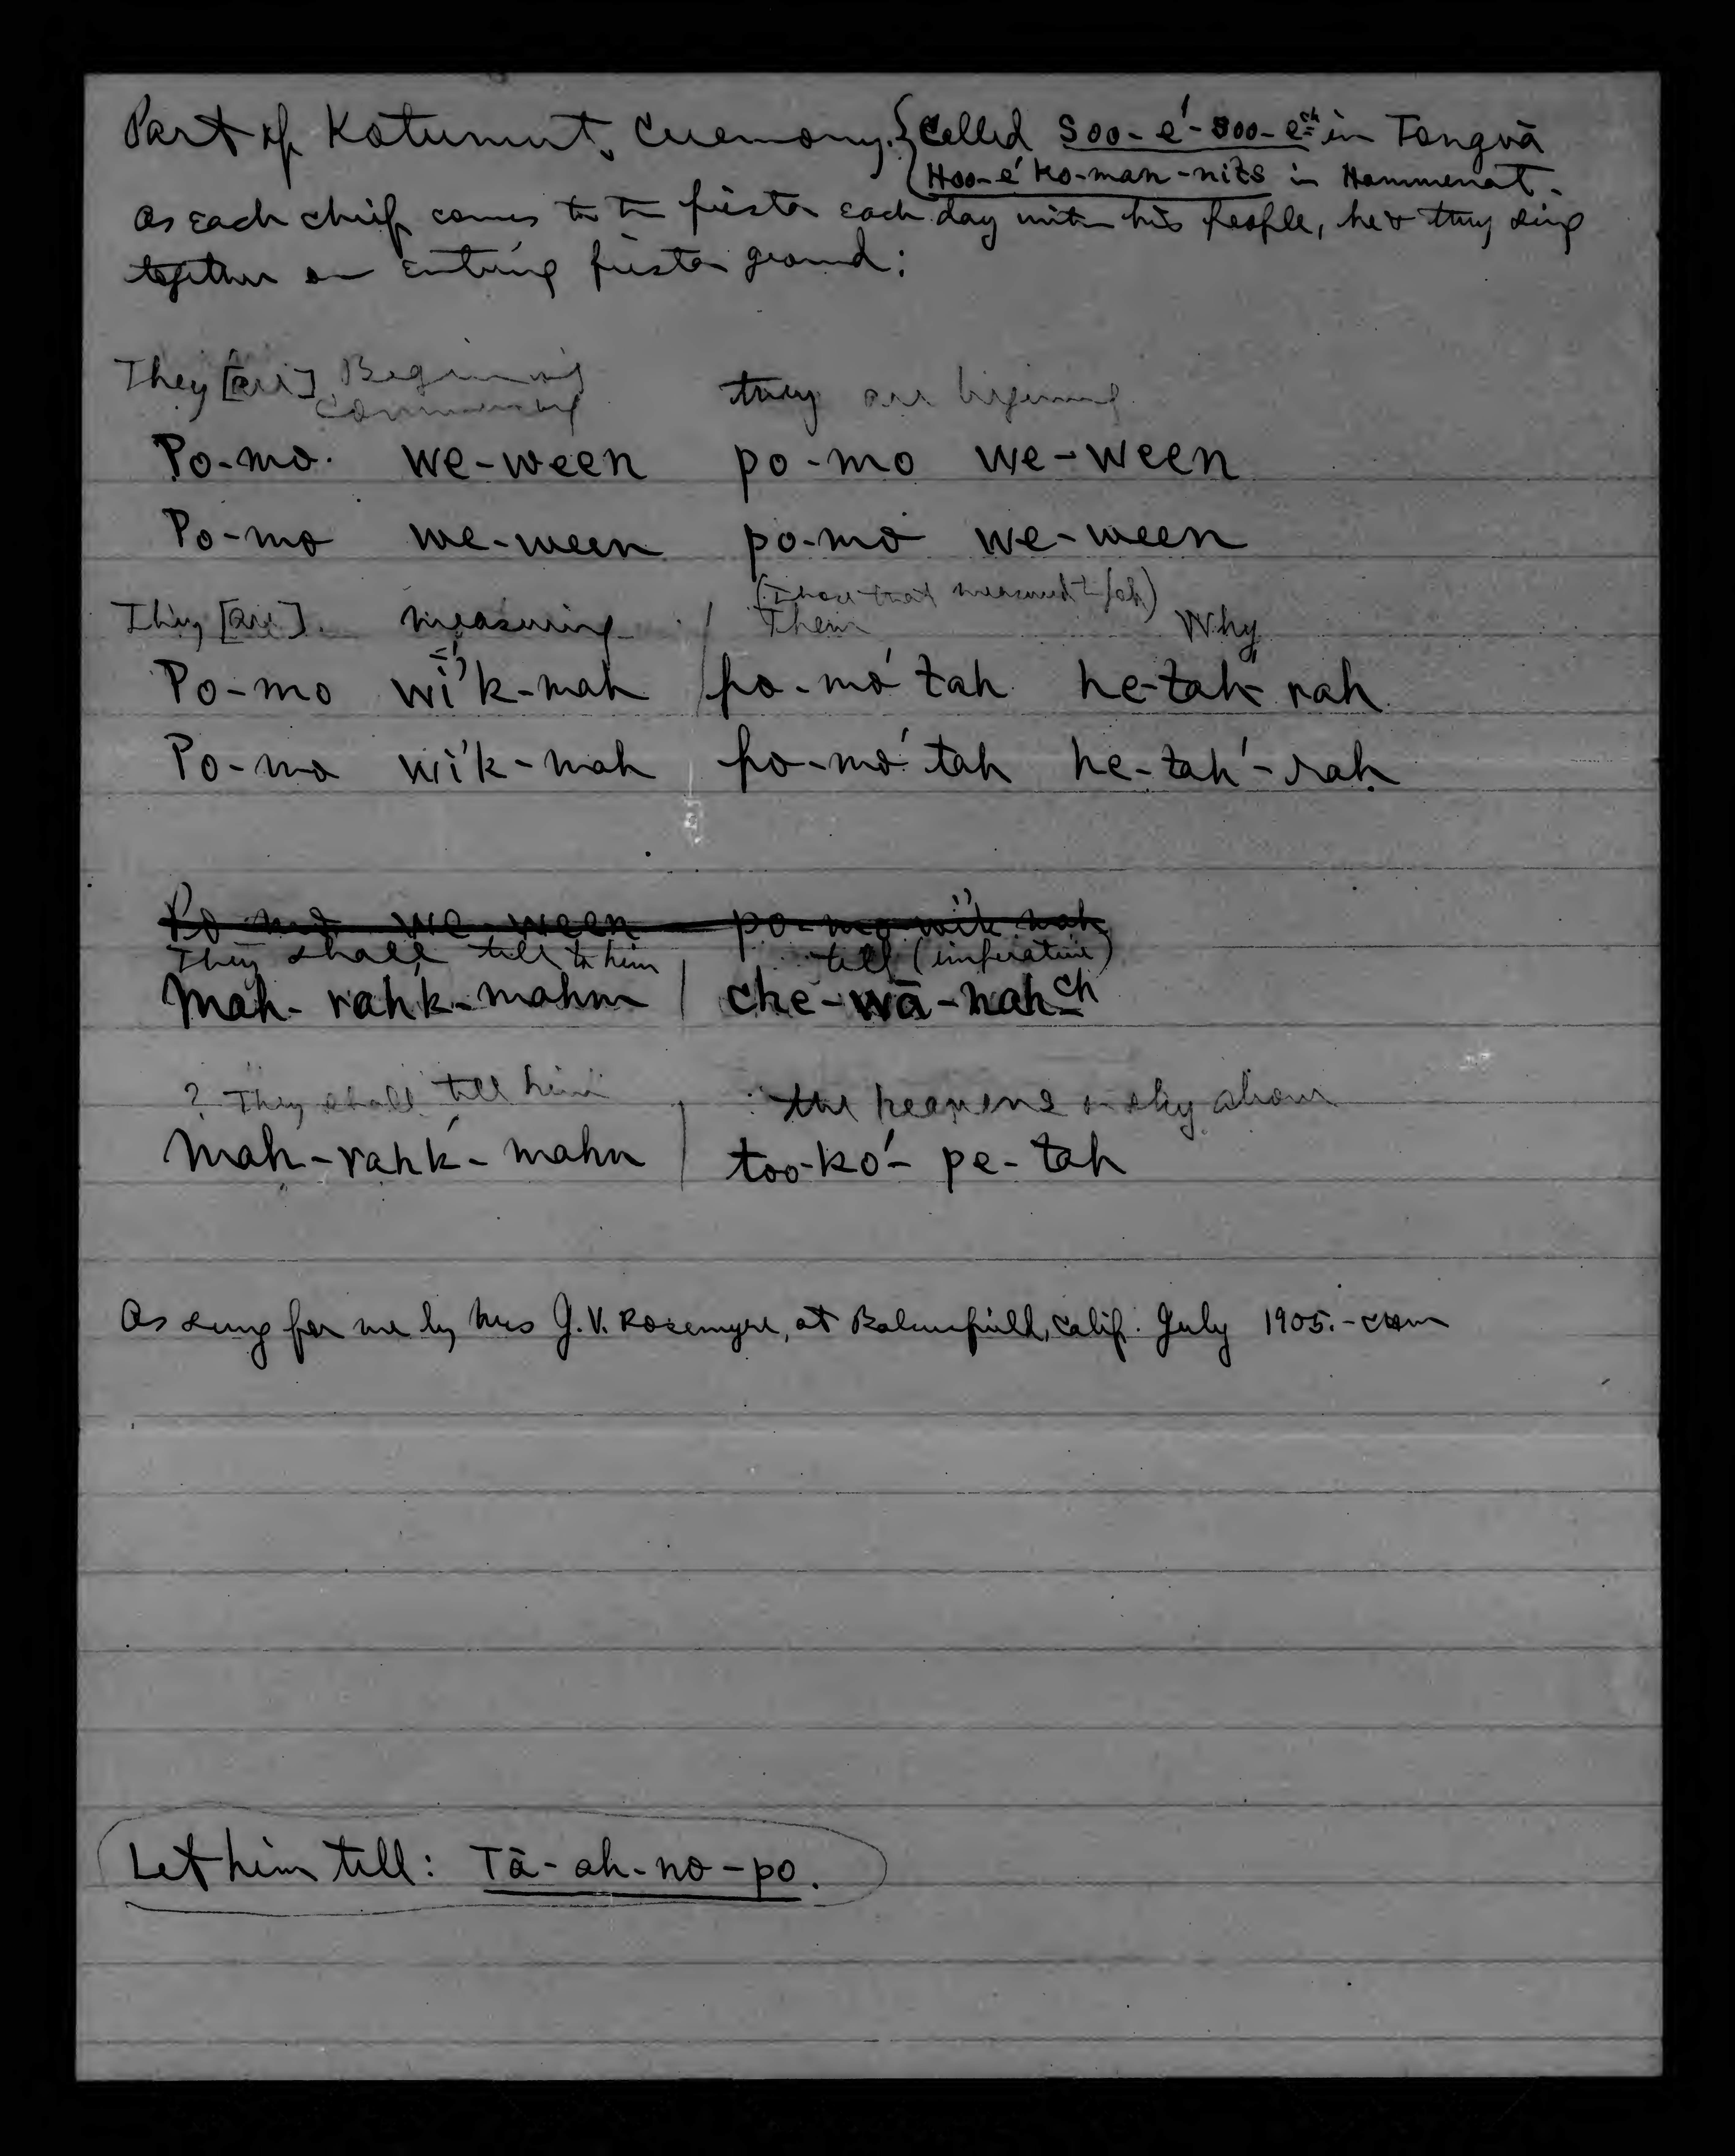 Part of Kotumut Ceremony. {Called Soo-e'-soo-ech in Tongvā
{Hoo-e' ko-man-nits in Hammenat.
As each chief comes to the fiesta each day with his people, he & they sing
together on entering fiesta ground:
They [are] Beginning they are beginning
commencing
Po-mo. we-ween po-mo we-ween
Po-mo we-ween po-mo we-ween
(those that measured)
They [are] measuring / Them Why
Po-mo wi'k-mah / po-mo' tah he-tah' rah
Po-mo wi'k-mah / po-mo' tah he-tah'-rah
Po-mo we-ween po-mo wik mah
They shall tell to him / tell (imperative)
Mah-rahk-mahm / che-wā-nahch
? They shall tell him / the heavens or sky above
Mah-rahk'-mahn / too-ko'-pe-tah
As sung for me by Mrs J.V. Rosemyre, at Bakersfield, Calif. July 1905.-CHM
Let him tell: Tā-ah-no-po.